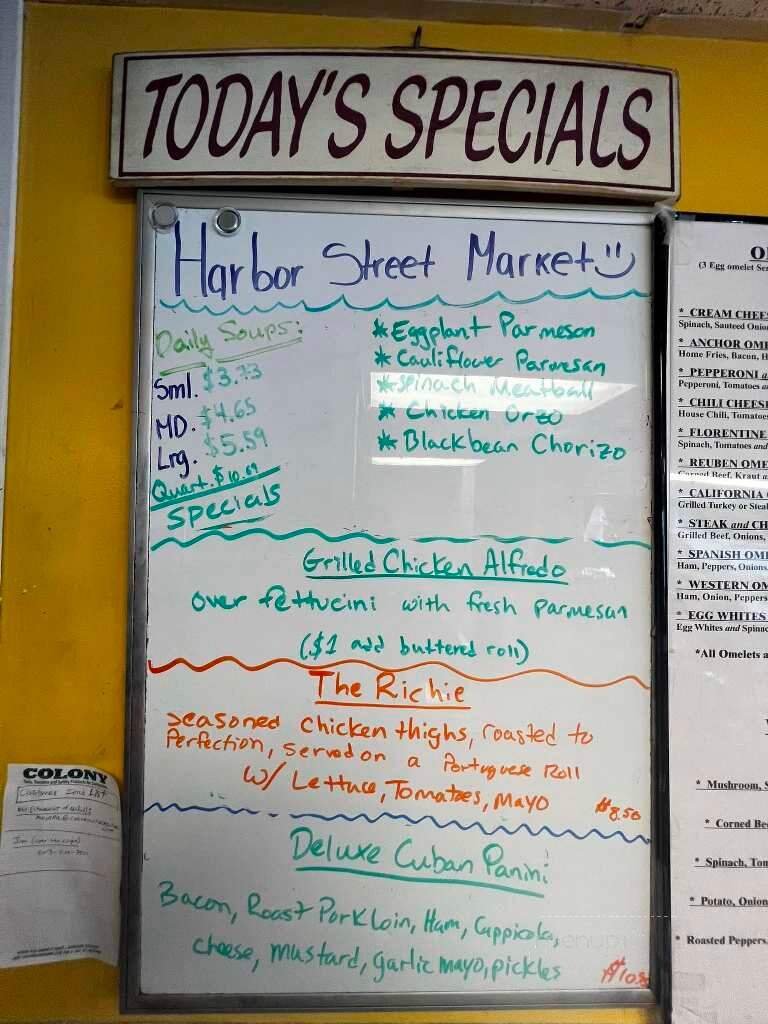 TODAY'S SPECIALS
Harbor Street Market
Daily Soups:
Sml. $3.73
MD. $4.65
Lrg. $5.59
Quart. $10.69
Specials
* Eggplant Parmeson
* Cauliflower Parmesan
* Spinach Meatball
* Chicken Orzo
* Blackbean Chorizo
Grilled Chicken Alfredo
over fettucini with fresh parmesan
($1 add buttered roll)
The Richie
seasoned chicken thighs, roasted to
Perfection, served on a Portuguese Roll
w/ Lettuce, Tomatoes, Mayo $8.50
Deluxe Cuban Panini
Bacon, Roast Pork loin, Ham, Cappicola,
cheese, mustard, garlic mayo, pickles
COLONY
Customer Send List
(3 Egg omelet
* CREAM
Spinach, Sauteed
* ANCHOR
Home Fries, Bacon,
* PEPPERONI
Pepperoni, Tomatoes
* CHILI
House Chili,
* FLORENTINE
Spinach, Tomatoes and
* REUBEN
Corned Beef, Kraut
* CALIFORNIA
Grilled Turkey or
* STEAK and
Grilled Beef, Onions,
* SPANISH
Ham, Peppers,
* WESTERN
Ham, Onion, Peppers
* EGG WHITES
Egg Whites and
*All Omelets
* Mushroom,
* Corned
* Spinach,
* Potato,
* Roasted Peppers,